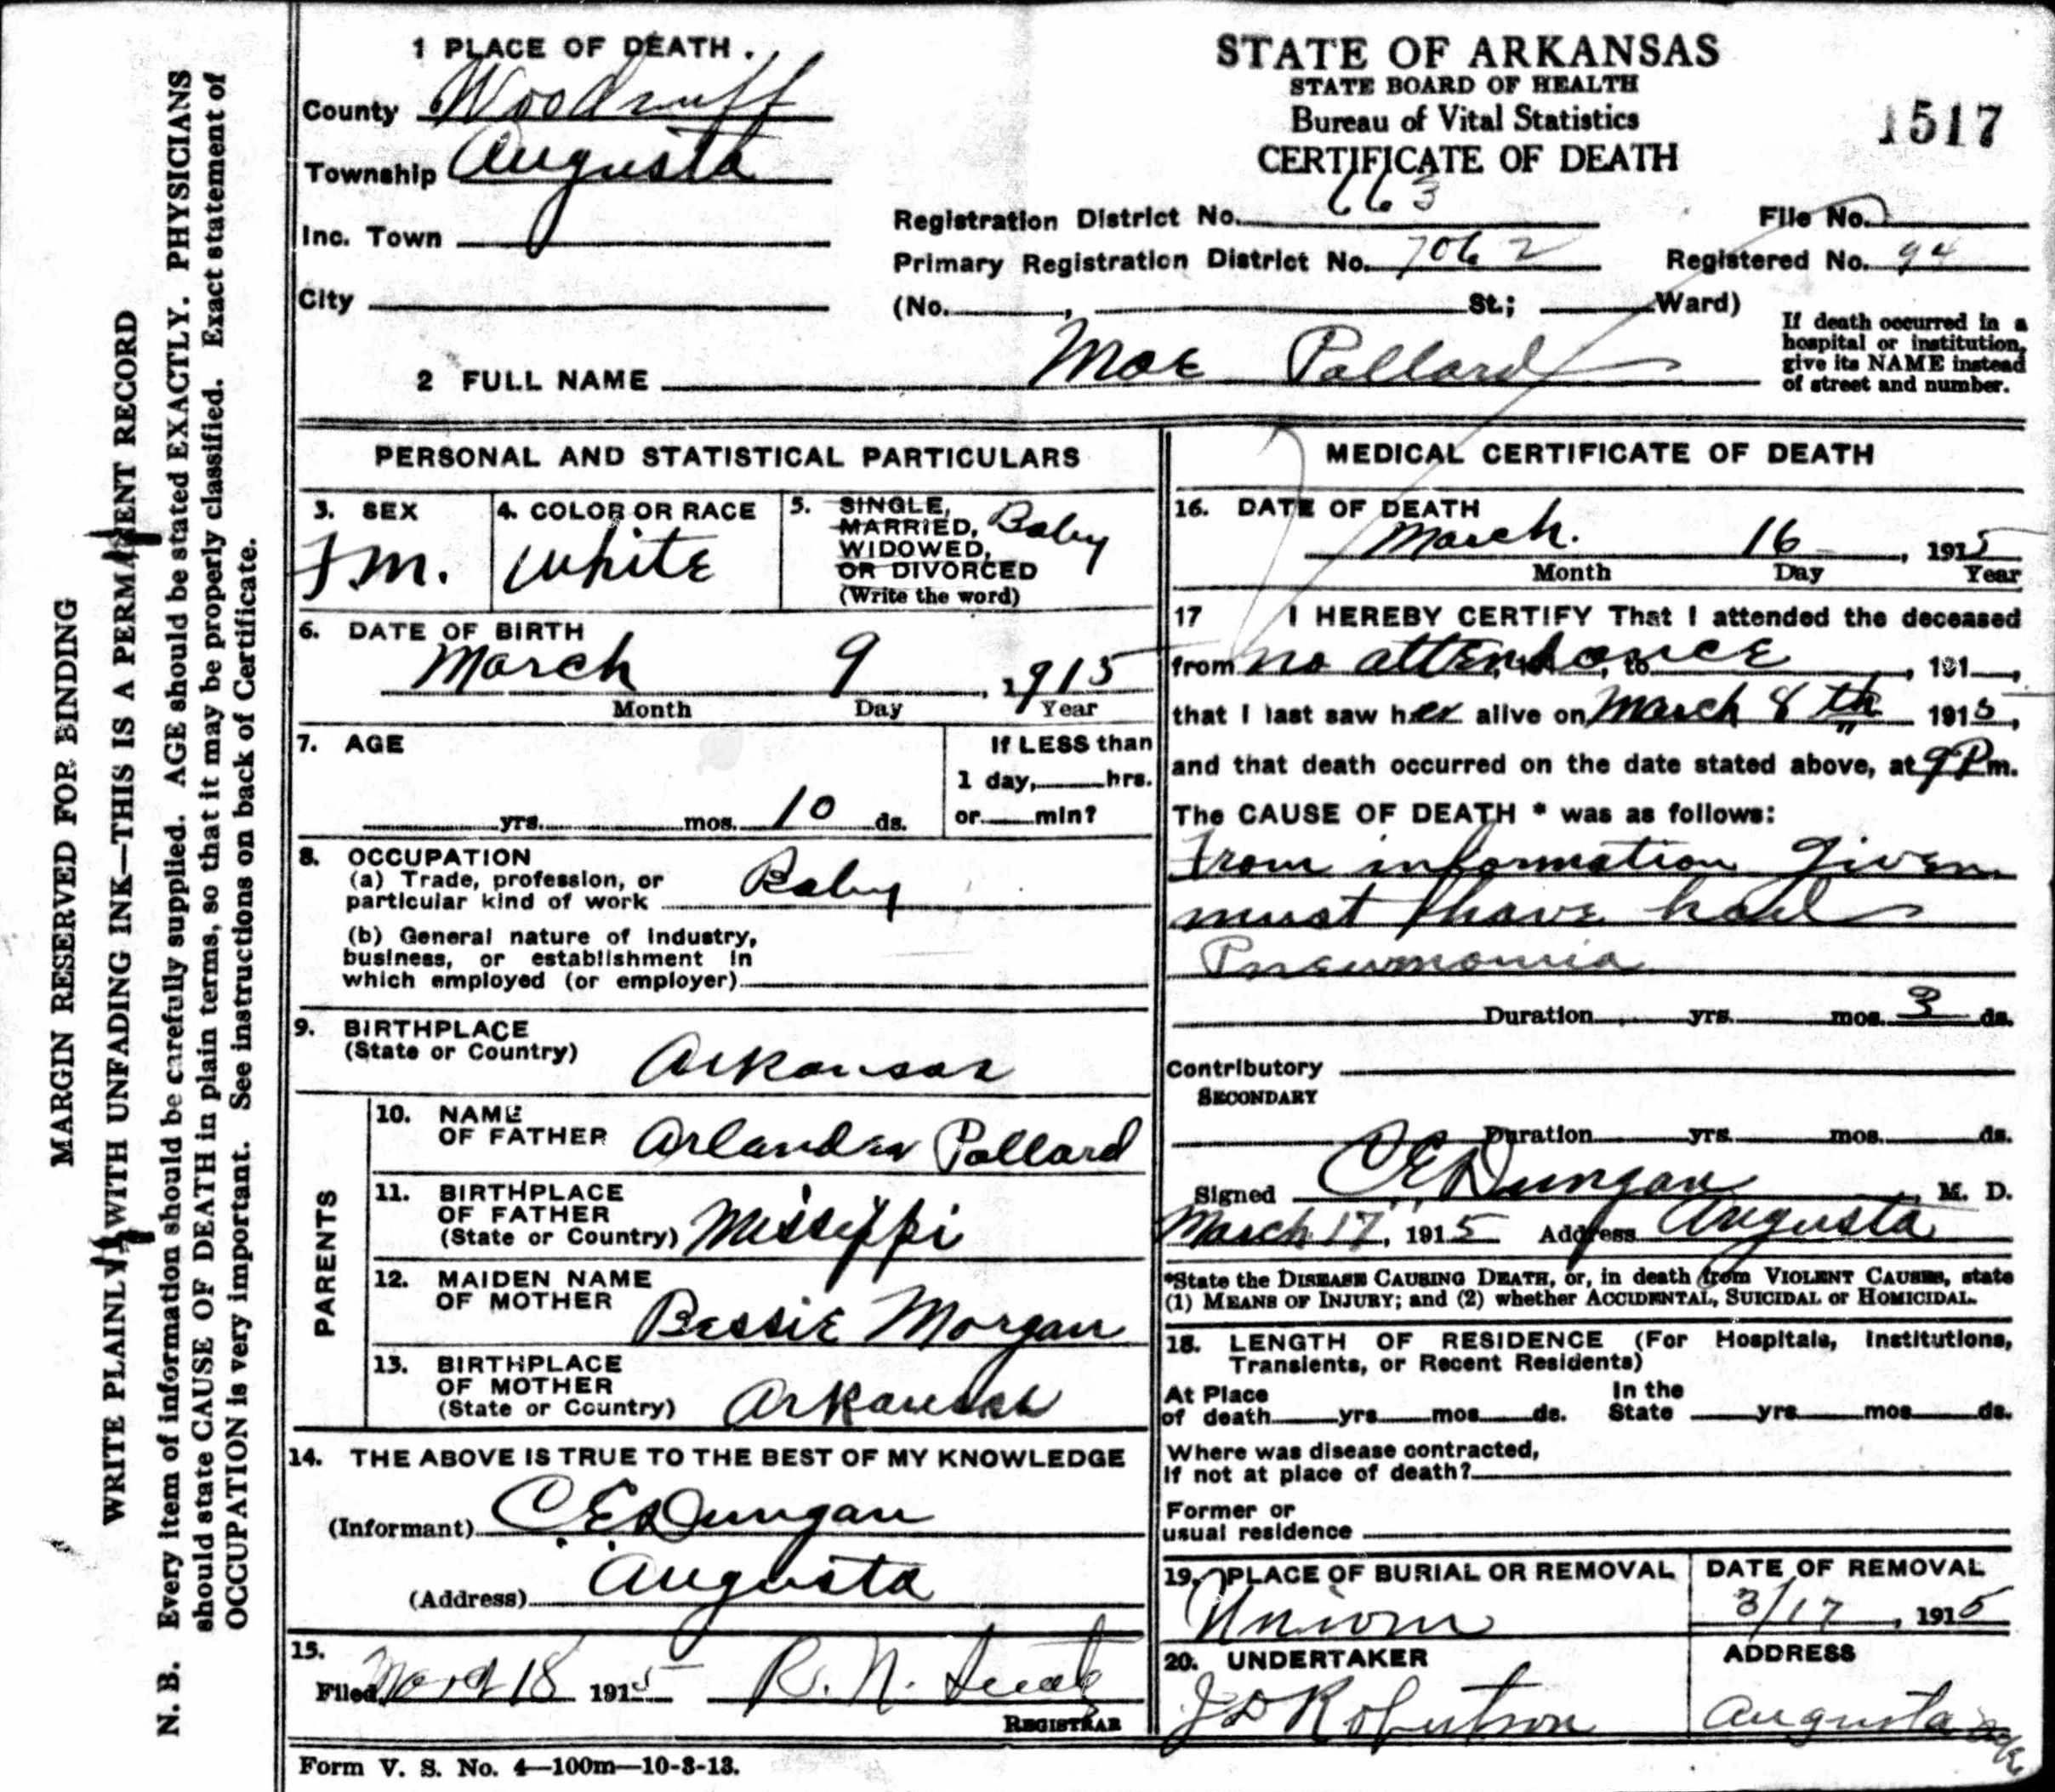 MARGIN RESERVED FOR BINDING
WRITE PLAINLY, WITH UNFADING INK—THIS IS A PERMANENT RECORD
N. B. Every item of information should be carefully supplied. AGE should be stated EXACTLY. PHYSICIANS
should state CAUSE OF DEATH in plain terms, so that it may be properly classified. Exact statement of
OCCUPATION is very important. See instructions on back of Certificate.
1 PLACE OF DEATH.
County Woodruff
Township Augusta
Inc. Town
City
STATE OF ARKANSAS
STATE BOARD OF HEALTH
Bureau of Vital Statistics
CERTIFICATE OF DEATH
1517
Registration District No. 663 File No.
Primary Registration District No. 7062 Registered No. 94
(No. , St.; Ward)
If death occurred in a
hospital or institution,
give its NAME instead
of street and number.
2 FULL NAME Moe Pollard
PERSONAL AND STATISTICAL PARTICULARS
3. SEX
Fm.
4. COLOR OR RACE
White
5. SINGLE,
MARRIED,
WIDOWED,
OR DIVORCED
(Write the word)
Baby
6. DATE OF BIRTH
March 9, 1915
Month Day Year
7. AGE
yrs. mos. 10 ds.
If LESS than
1 day, hrs.
or min?
8. OCCUPATION
(a) Trade, profession, or
particular kind of work Baby
(b) General nature of Industry,
business, or establishment in
which employed (or employer)
9. BIRTHPLACE
(State or Country) Arkansas
PARENTS
10. NAME
OF FATHER Arlander Pollard
11. BIRTHPLACE
OF FATHER
(State or Country) Missippi
12. MAIDEN NAME
OF MOTHER Bessie Morgan
13. BIRTHPLACE
OF MOTHER
(State or Country) Arkansas
14. THE ABOVE IS TRUE TO THE BEST OF MY KNOWLEDGE
(Informant) C E Dungan
(Address) Augusta
15.
Filed March 18 1915 R. N.
REGISTRAR
MEDICAL CERTIFICATE OF DEATH
16. DATE OF DEATH
March. 16, 1915
Month Day Year
17 I HEREBY CERTIFY That I attended the deceased
from no attendance, 191 , to , 191 ,
that I last saw her alive on March 8th 1915,
and that death occurred on the date stated above, at 9 P m.
The CAUSE OF DEATH * was as follows:
From information given
must have had
Pneumonia
Duration yrs. mos. 3 ds.
Contributory
SECONDARY
Duration yrs. mos. ds.
Signed C E Dungan, M. D.
March 17, 1915 Address Augusta
*State the DISEASE CAUSING DEATH, or, in death from VIOLENT CAUSES, state
(1) MEANS OF INJURY; and (2) whether ACCIDENTAL, SUICIDAL or HOMICIDAL.
18. LENGTH OF RESIDENCE (For Hospitals, Institutions,
Transients, or Recent Residents)
At Place
of death yrs. mos. ds.
In the
State yrs. mos. ds.
Where was disease contracted,
If not at place of death?
Former or
usual residence
19. PLACE OF BURIAL OR REMOVAL
Union
DATE OF REMOVAL
3/17, 1915
20. UNDERTAKER
J D Robertson
ADDRESS
Augusta Ark
Form V. S. No. 4—100m—10-8-13.